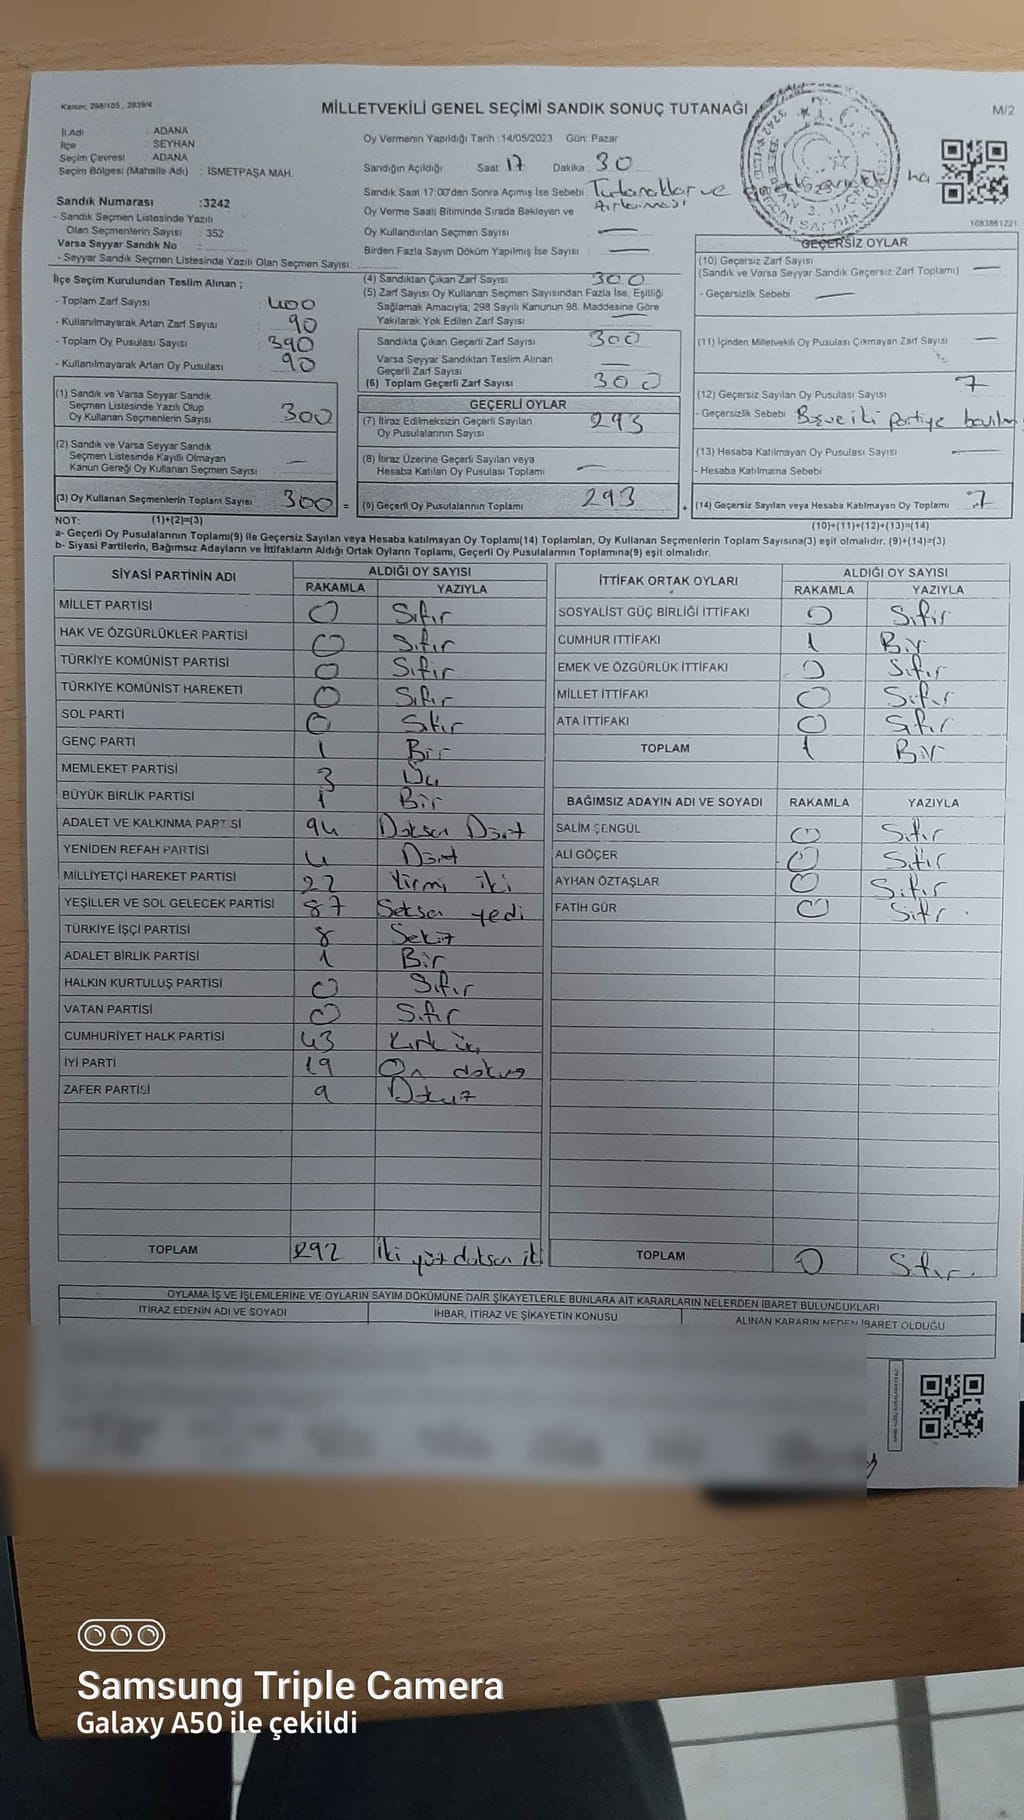 Kanun: 298/105 , 2839/4
MİLLETVEKİLİ GENEL SEÇİMİ SANDIK SONUÇ TUTANAĞI
M/2
İl Adı : ADANA
İlçe : SEYHAN
Seçim Çevresi : ADANA
Seçim Bölgesi (Mahalle Adı) : İSMETPAŞA MAH.
Sandık Numarası :3242
- Sandık Seçmen Listesinde Yazılı
Olan Seçmenlerin Sayısı : 352
Varsa Seyyar Sandık No :
- Seyyar Sandık Seçmen Listesinde Yazılı Olan Seçmen Sayısı:
Oy Vermenin Yapıldığı Tarih :14/05/2023 Gün: Pazar
Sandığın Açıldığı Saat: 17 Dakika : 30
Sandık Saat 17:00'den Sonra Açımış İse Sebebi Tutanaklar ve
Oy Verme Saati Bitiminde Sırada Bekleyen ve
Oy Kullandırılan Seçmen Sayısı : —
Birden Fazla Sayım Döküm Yapılmış İse Sayısı : —
1083861221
İlçe Seçim Kurulundan Teslim Alınan ;
- Toplam Zarf Sayısı : 400
- Kullanılmayarak Artan Zarf Sayısı : 90
- Toplam Oy Pusulası Sayısı : 390
- Kullanılmayarak Artan Oy Pusulası : 90
(1) Sandık ve Varsa Seyyar Sandık
Seçmen Listesinde Yazılı Olup
Oy Kullanan Seçmenlerin Sayısı : 300
(2) Sandık ve Varsa Seyyar Sandık
Seçmen Listesinde Kayıtlı Olmayan
Kanun Gereği Oy Kullanan Seçmen Sayısı : —
(3) Oy Kullanan Seçmenlerin Toplam Sayısı : 300 =
(4) Sandıktan Çıkan Zarf Sayısı 300
(5) Zarf Sayısı Oy Kullanan Seçmen Sayısından Fazla İse, Eşitliği
Sağlamak Amacıyla; 298 Sayılı Kanunun 98. Maddesine Göre
Yakılarak Yok Edilen Zarf Sayısı : —
Sandıkta Çıkan Geçerli Zarf Sayısı : 300
Varsa Seyyar Sandıktan Teslim Alınan
Geçerli Zarf Sayısı : —
(6) Toplam Geçerli Zarf Sayısı : 300
GEÇERLİ OYLAR
(7) İtiraz Edilmeksizin Geçerli Sayılan
Oy Pusulalarının Sayısı : 293
(8) İtiraz Üzerine Geçerli Sayılan veya
Hesaba Katılan Oy Pusulası Toplamı : —
(9) Geçerli Oy Pusulalarının Toplamı : 293 +
GEÇERSİZ OYLAR
(10) Geçersiz Zarf Sayısı
(Sandık ve Varsa Seyyar Sandık Geçersiz Zarf Toplamı) : —
- Geçersizlik Sebebi : —
(11) İçinden Milletvekili Oy Pusulası Çıkmayan Zarf Sayısı : —
(12) Geçersiz Sayılan Oy Pusulası Sayısı : 7
- Geçersizlik Sebebi : iki partiye
(13) Hesaba Katılmayan Oy Pusulası Sayısı : —
- Hesaba Katılmama Sebebi
(14) Geçersiz Sayılan veya Hesaba Katılmayan Oy Toplamı : 7
NOT: (1)+(2)=(3)
(10)+(11)+(12)+(13)=(14)
a- Geçerli Oy Pusulalarının Toplamı(9) ile Geçersiz Sayılan veya Hesaba katılmayan Oy Toplamı(14) Toplamları, Oy Kullanan Seçmenlerin Toplam Sayısına(3) eşit olmalıdır. (9)+(14)=(3)
b- Siyasi Partilerin, Bağımsız Adayların ve İttifakların Aldığı Ortak Oyların Toplamı, Geçerli Oy Pusulalarının Toplamına(9) eşit olmalıdır.
SİYASİ PARTİNİN ADI ALDIĞI OY SAYISI
RAKAMLA YAZIYLA
MİLLET PARTİSİ 0 Sıfır
HAK VE ÖZGÜRLÜKLER PARTİSİ 0 Sıfır
TÜRKİYE KOMÜNİST PARTİSİ 0 Sıfır
TÜRKİYE KOMÜNİST HAREKETİ 0 Sıfır
SOL PARTİ 0 Sıfır
GENÇ PARTİ 1 Bir
MEMLEKET PARTİSİ 3 Üç
BÜYÜK BİRLİK PARTİSİ 1 Bir
ADALET VE KALKINMA PARTİSİ 94 Doksan Dört
YENİDEN REFAH PARTİSİ 4 Dört
MİLLİYETÇİ HAREKET PARTİSİ 22 Yirmi iki
YEŞİLLER VE SOL GELECEK PARTİSİ 87 Seksen yedi
TÜRKİYE İŞÇİ PARTİSİ 8 Sekiz
ADALET BİRLİK PARTİSİ 1 Bir
HALKIN KURTULUŞ PARTİSİ 0 Sıfır
VATAN PARTİSİ 0 Sıfır
CUMHURİYET HALK PARTİSİ 43 Kırk üç
İYİ PARTİ 19 On dokuz
ZAFER PARTİSİ 9 Dokuz
TOPLAM 292 İki yüz doksan iki
İTTİFAK ORTAK OYLARI ALDIĞI OY SAYISI
RAKAMLA YAZIYLA
SOSYALİST GÜÇ BİRLİĞİ İTTİFAKI 0 Sıfır
CUMHUR İTTİFAKI 1 Bir
EMEK VE ÖZGÜRLÜK İTTİFAKI 0 Sıfır
MİLLET İTTİFAKI 0 Sıfır
ATA İTTİFAKI 0 Sıfır
TOPLAM 1 Bir
BAĞIMSIZ ADAYIN ADI VE SOYADI RAKAMLA YAZIYLA
SALİM ŞENGÜL 0 Sıfır
ALİ GÖÇER 0 Sıfır
AYHAN ÖZTAŞLAR 0 Sıfır
FATİH GÜR 0 Sıfır .
TOPLAM 0 Sıfır.
OYLAMA İŞ VE İŞLEMLERİNE VE OYLARIN SAYIM DÖKÜMÜNE DAİR ŞİKAYETLERLE BUNLARA AİT KARARLARIN NELERDEN İBARET BULUNDUKLARI
İTİRAZ EDENİN ADI VE SOYADI İHBAR, İTİRAZ VE ŞİKAYETİN KONUSU ALINAN KARARIN NEDEN İBARET OLDUĞU
Samsung Triple Camera
Galaxy A50 ile çekildi